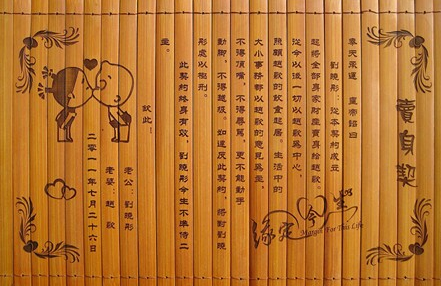 賣身契
奉天承運 皇帝詔曰
劉曉彤：從本契約成立
起將全部身家財產賣身給趙歡。
從今以後一切以趙歡為中心，
照顧趙歡的飲食起居。生活中的
大小事務都以趙歡的意見為主，
不得頂嘴，不得辱罵，更不能動手
動腳，不得越級。如違反此契約，將對劉曉
彤處以極刑。
此契約終身有效，劉曉彤今生不準侍二
主。
欽此！
老公：劉曉彤
老婆：趙歡
二零一一年七月二十六日
緣定今生
Margin For This Life